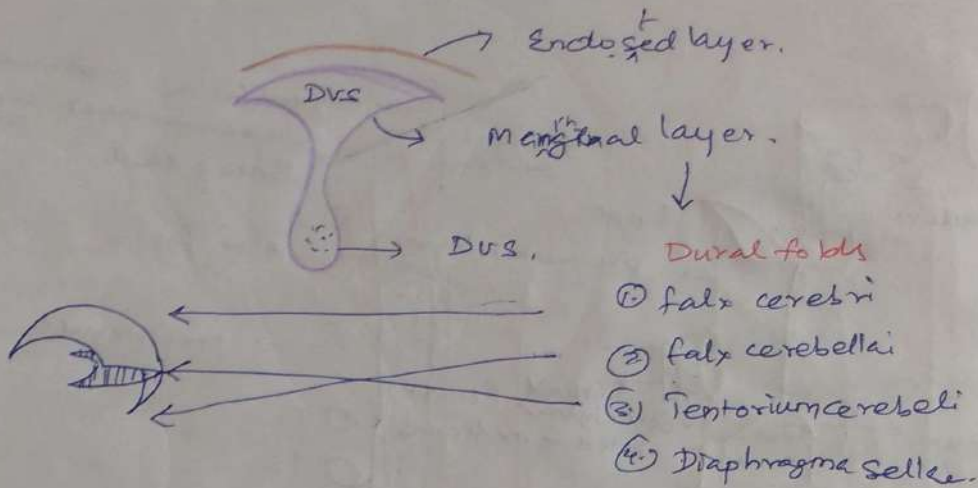 Endosted layer.
DVS
Meningthal layer.
DVS.
Dural folds
① falx cerebri
② falx cerebellai
③ Tentoriumcerebeli
④ Diaphragma Sellae.